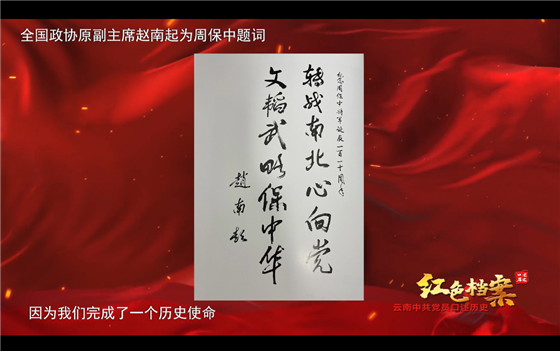 全国政协原副主席赵南起为周保中题词
纪念周保中将军诞辰一百一十周年
轉战南北心向党
文韬武略保中华
趙南起
红色档案
云南中共党员口述历史
因为我们完成了一个历史使命